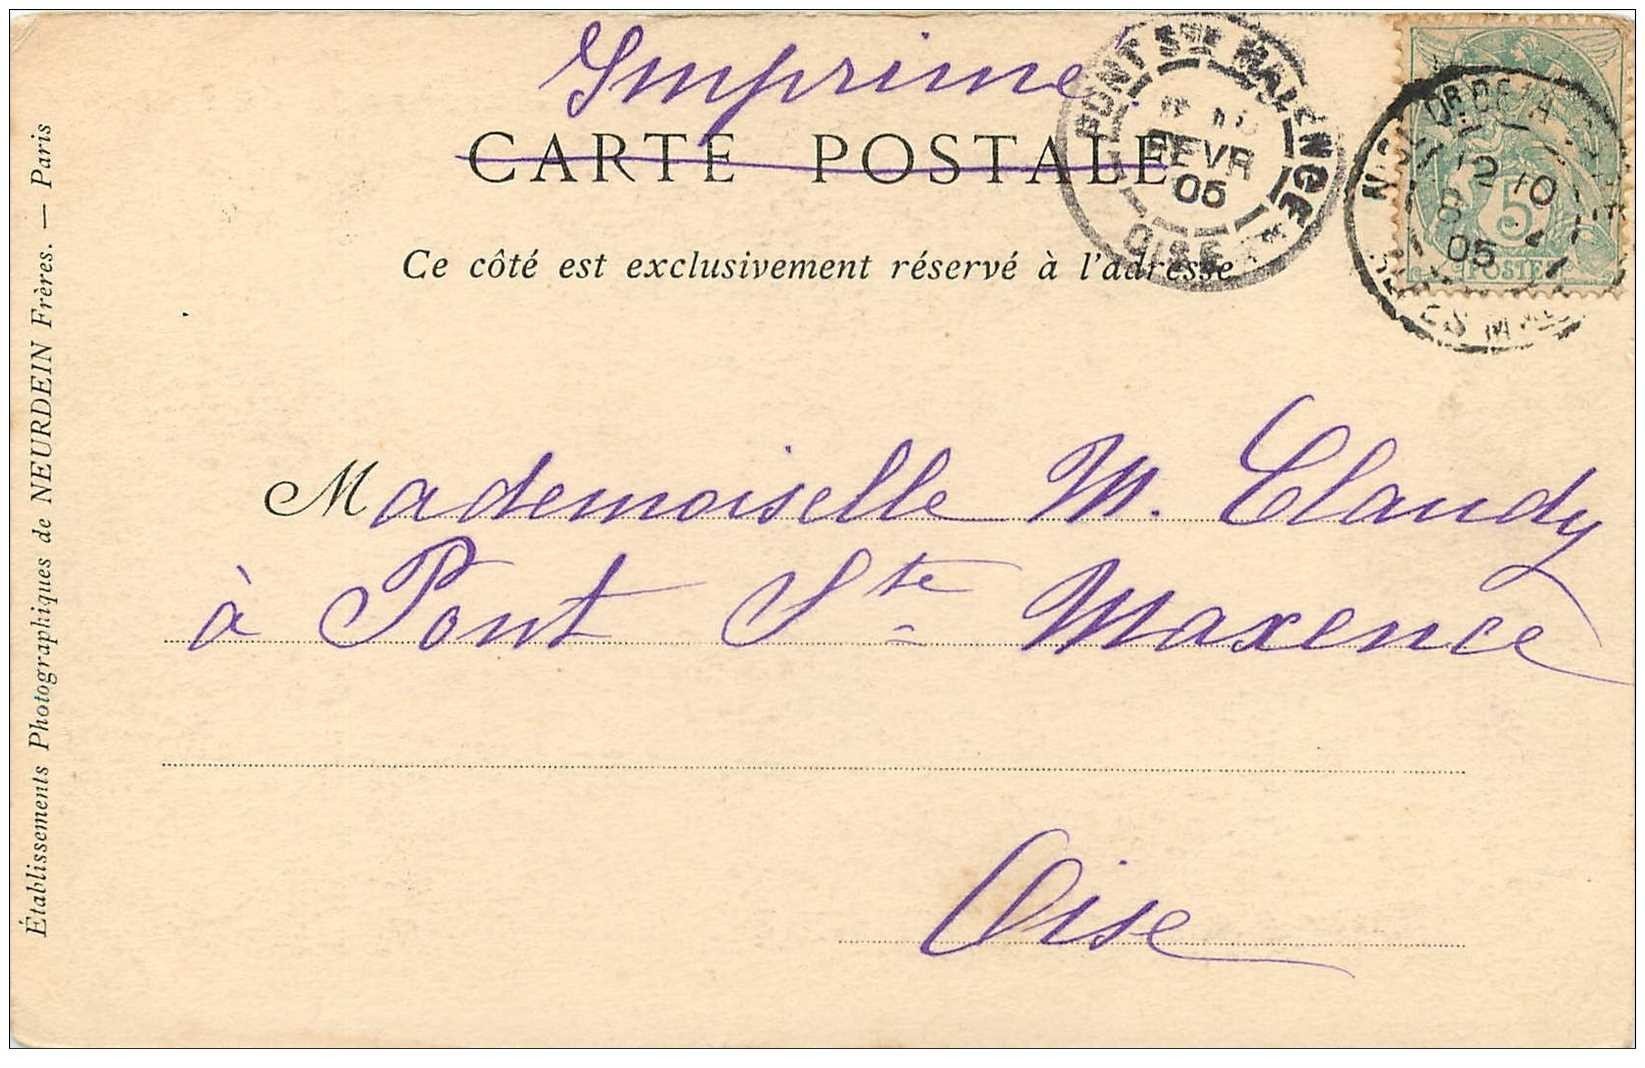 Imprimé
CARTE POSTALE
Ce côté est exclusivement réservé à l'adresse
Mademoiselle M. Claudy
à Pont Ste Maxence
Oise
Établissements Photographiques de NEURDEIN Frères. — Paris
PONT STE MAXENCE
FEVR
05
OISE
12
05
5
POSTE